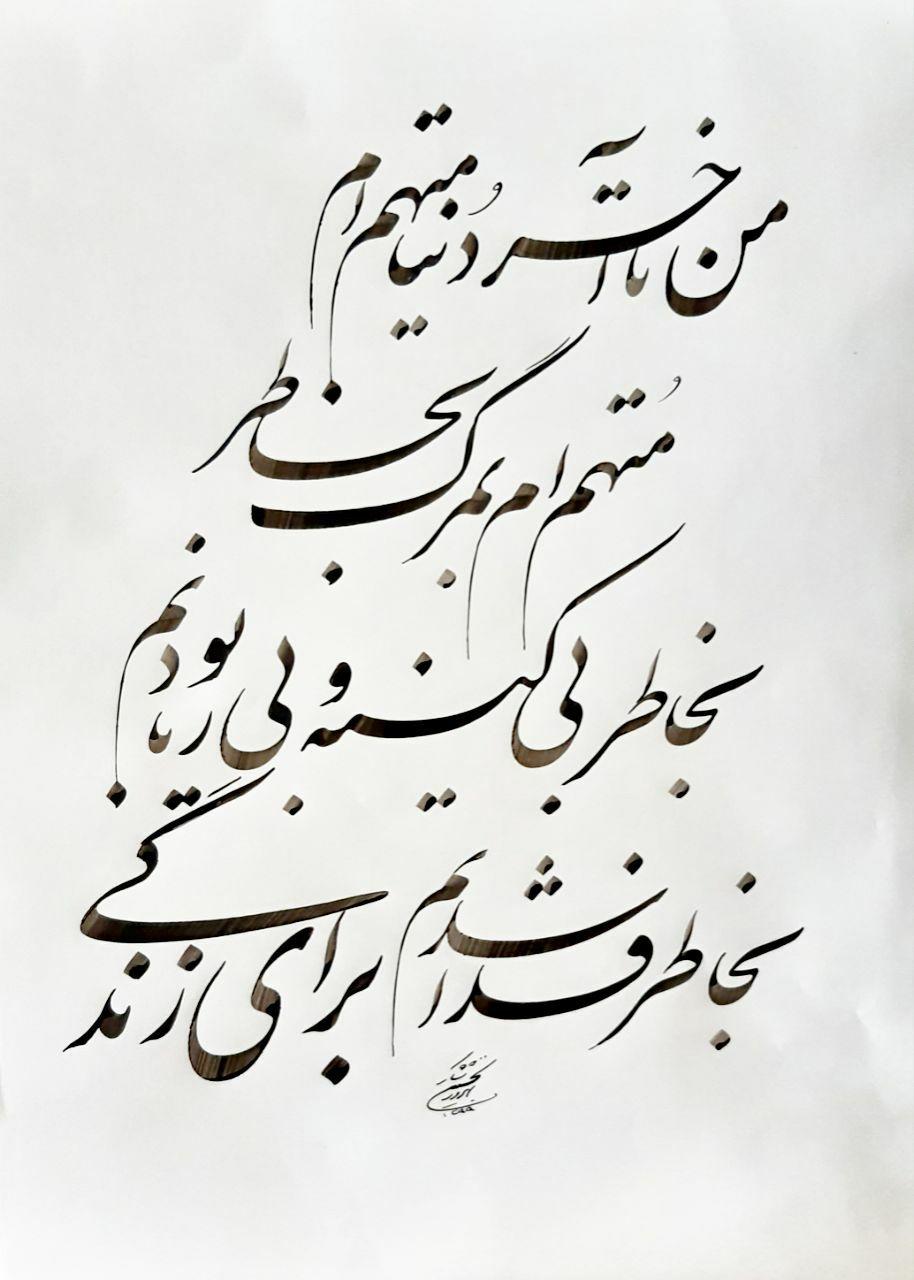 من تا آخر دُنیا متهم ام
مُتهم ام بمرگ بخاطر
بخاطر بی کینه و بی ریا بودنم
بخاطر فدا نشدنم برای زندگی